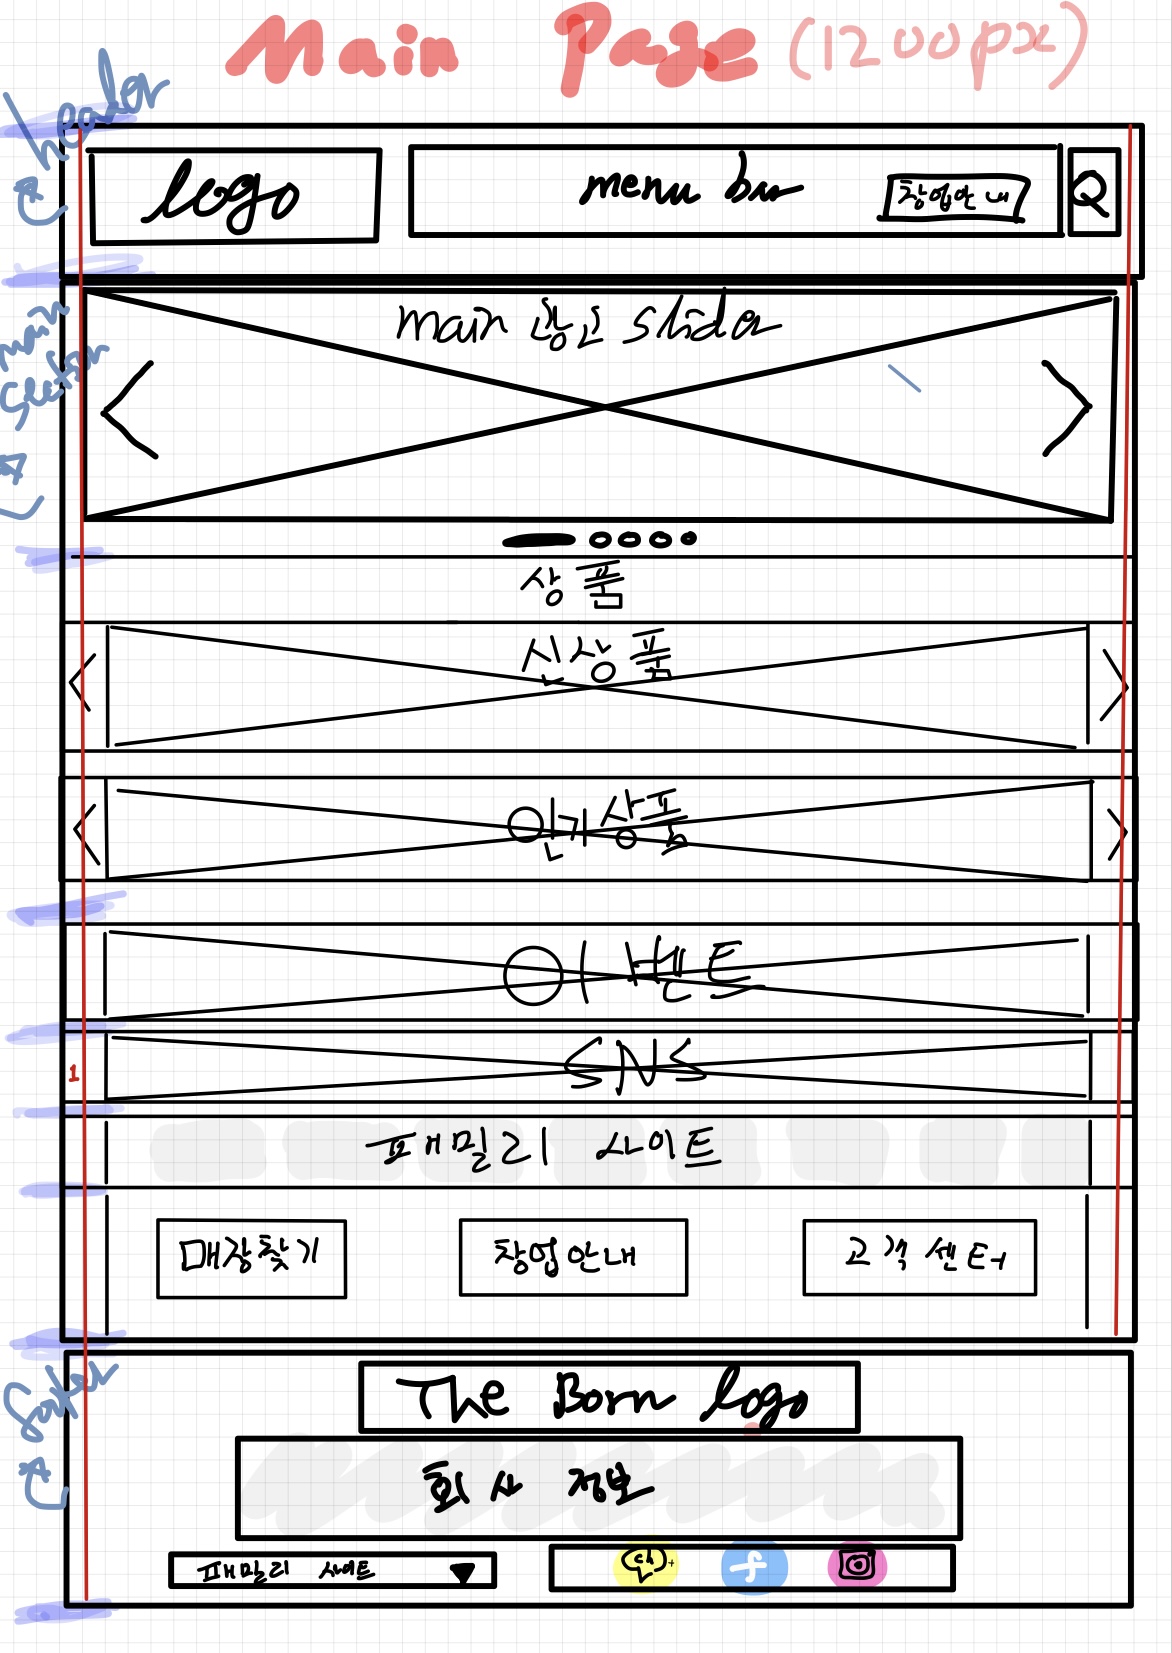 Main Page (1200px)
header
logo
menu bar
창업안내
Q
main section
main 광고 slider
상품
신상품
인기상품
이벤트
SNS
1
패밀리 사이트
매장찾기
창업안내
고객센터
footer
The Born logo
회사 정보
패밀리 사이트
ch+
f